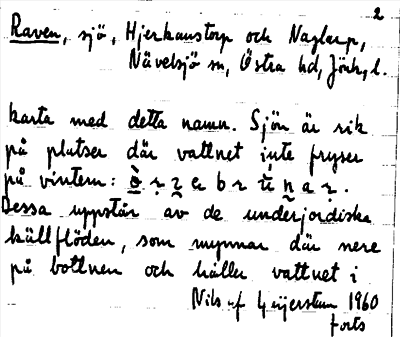 2
Raven, sjö, Hjerkanstorp och Naglarp,
Nävelsjö sn, Östra hd, Jönk. l.
karta med detta namn. Sjön är rik
på platser där vattnet inte fryser
på vintern:
Dessa uppstår av de underjordiska
källflöden, som mynnar där nere
på bottnen och håller vattnet i
Nils af Geijerstam 1960
forts